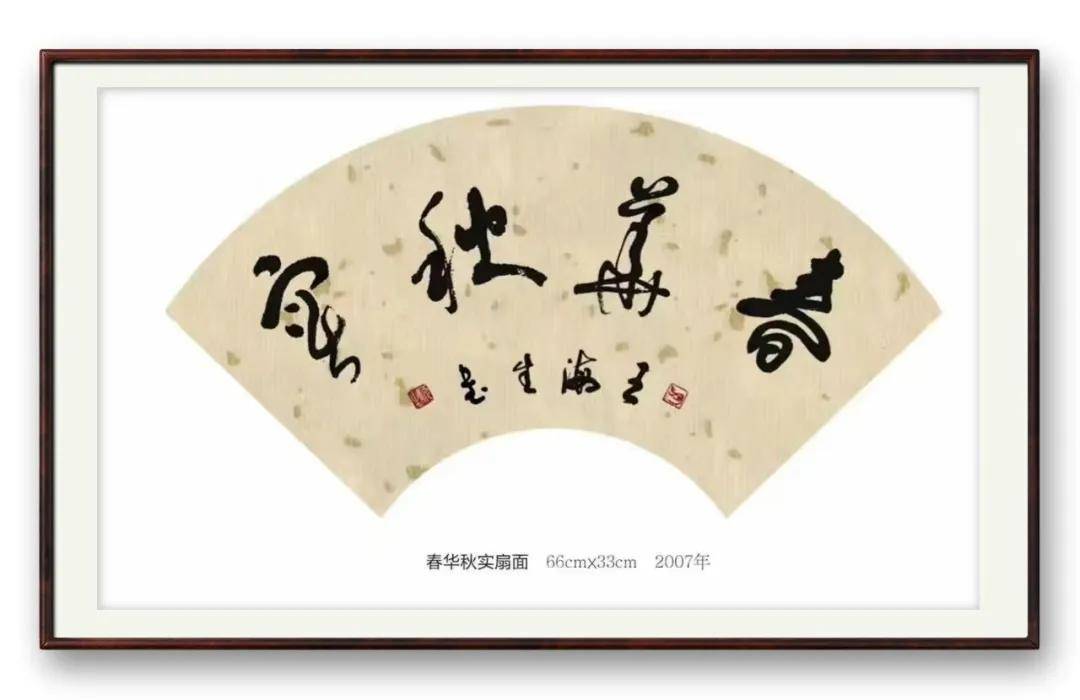 春華秋實
王海生
春华秋实扇面 66cmX33cm 2007年